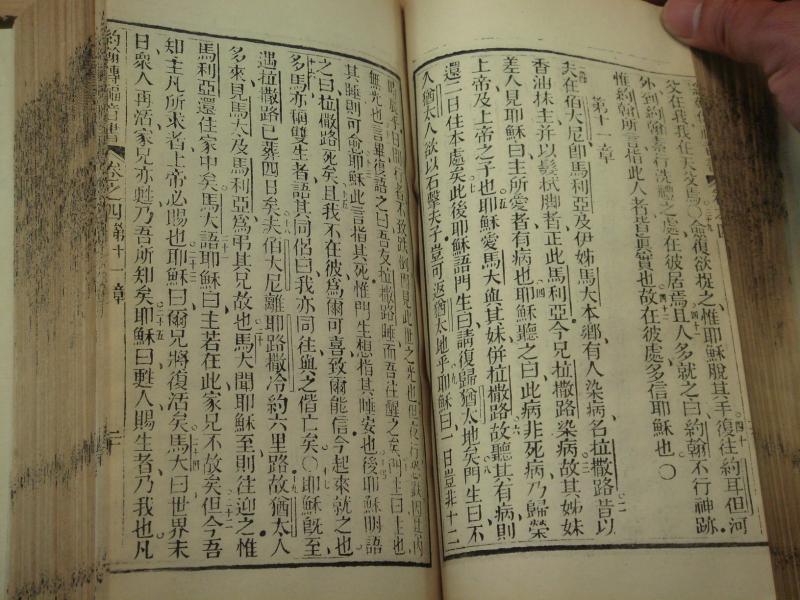 父在我我在天父焉人愈復欲捉之惟耶穌脫其手復往約耳但河
外到約翰素行洗禮之處在彼居焉且人多就之曰約翰不行神跡
惟約翰所言指此人者皆真實也故在彼處多信耶穌也〇
第十一章
夫在伯大尼即馬利亞及伊姊馬大本鄉有人染病名拉撒路昔以
香油抹主并以髮拭脚者正此馬利亞今兄拉撒路染病故其姊妹
差人見耶穌曰主所愛者有病也耶穌聽之曰此病非死病乃歸榮
上帝及上帝之子也耶穌愛馬大與其妹併拉撒路故聽其有病則
還二日住本處矣此後耶穌語門生曰請復歸猶太地矣門生曰不
久猶太人欲以石擊夫子豈可返猶太地乎耶穌曰一日豈非十二
無光也言畢復語之曰吾友拉撒路睡而吾往醒之矣門生曰主也
其睡則可愈耶穌此言指其死惟門生想指其睡安也後耶穌明語
之曰拉撒路死矣且我不在彼爲爾可喜致爾能信今起來就之也
多馬亦稱雙生者語其同侶曰我亦同往與之偕亡矣〇耶穌旣至
遇拉撒路已葬四日矣夫伯大尼離耶路撒冷約六里路故猶太人
多來見馬大及馬利亞爲弔其兄故也馬大聞耶穌至則往迎之惟
馬利亞還住家中矣馬大語耶穌曰主若在此家兄不故矣但今吾
知主凡所求者上帝必賜也耶穌曰爾兄將復活矣馬大曰世界末
日衆人再活家兄亦甦乃吾所知矣耶穌曰甦人賜生者乃我也凡
約翰傳福音書 卷之四 第十一章